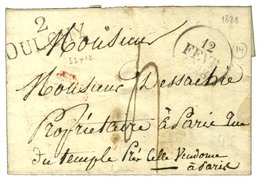 2
OULCHY
33x12
12
FEVR
1821
Monsieur
Monsieur Dessache
Propriétaire à Paris Rue
du temple Près Celle Vendome
à Paris